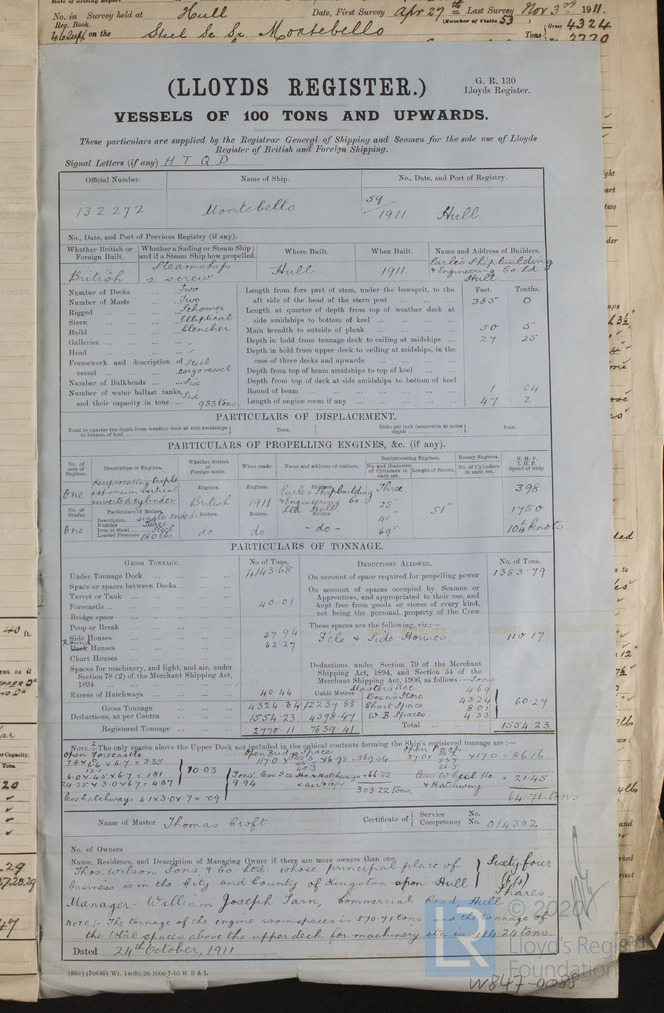 No. in Survey held at Hull Date, First Survey Apr 27th Last Survey Nov 3rd 1911.
Reg. Book. (Number of Visits 53) Gross 4324
on the Steel Sc Sr Montebello Tons 2770
(LLOYDS REGISTER.)
G. R. 130
Lloyds Register.
VESSELS OF 100 TONS AND UPWARDS.
These particulars are supplied by the Registrar General of Shipping and Seamen for the sole use of Lloyds
Register of British and Foreign Shipping.
Signal Letters (if any) H T Q D
Official Number. Name of Ship. No., Date, and Port of Registry.
132272 Montebello 59/1911 Hull
No., Date, and Port of Previous Registry (if any).
Whether British or Foreign Built. Whether a Sailing or Steam Ship; and if a Steam Ship how propelled. Where Built. When Built. Name and Address of Builders.
British Steamship s. screw Hull. 1911 Earle's Shipbuilding & Engineering Co. Ld Hull
Number of Decks Two
Number of Masts Two
Rigged Schooner
Stern Elliptical
Build Clencher
Galleries -
Head -
Framework and description of vessel Steel cargo vessel
Number of Bulkheads Six
Number of water ballast tanks, and their capacity in tons Six 933 tons
Feet. Tenths.
Length from fore part of stem, under the bowsprit, to the aft side of the head of the stern post 385 0
Length at quarter of depth from top of weather deck at side amidships to bottom of keel
Main breadth to outside of plank 50 5
Depth in hold from tonnage deck to ceiling at midships 27 25
Depth in hold from upper deck to ceiling at midships, in the case of three decks and upwards
Depth from top of beam amidships to top of keel
Depth from top of deck at side amidships to bottom of keel
Round of beam 1 04
Length of engine room if any 47 2
PARTICULARS OF DISPLACEMENT.
Total to quarter the depth from weather deck at side amidships to bottom of keel Tons. Ditto per inch immersion at same depth Tons.
PARTICULARS OF PROPELLING ENGINES, &c. (if any).
No. of sets of Engines. Description of Engines. Whether British or Foreign made. When made. Name and address of makers. Reciprocating Engines. Rotary Engines. N. H. P.
No. and Diameter of Cylinders in each set. Length of Stroke. No. of Cylinders in each set. I. H. P. Speed of Ship.
One Reciprocating triple expansion vertical inverted cylinder Engines. British Engines. 1911 Engines. Earle's Shipbuilding & Engineering Co. Ltd Hull Three 25" 41" 69" 51" 398
1750
10½ knots
No. of Shafts. Particulars of Boilers. Boilers. Boilers. Boilers.
One Description single ended
Number Three
Iron or Steel Steel
Loaded Pressure 180 lbs do do - do -
PARTICULARS OF TONNAGE.
GROSS TONNAGE. No. of Tons.
Under Tonnage Deck 4143.68
Space or spaces between Decks
Turret or Tank
Forecastle 40.01
Bridge space
Poop or Break
Side Houses 37.94
Round Houses 62.27
Chart Houses
Spaces for machinery, and light, and air, under Section 78 (2) of the Merchant Shipping Act, 1894
Excess of Hatchways 40.44 Cubic Metres
Gross Tonnage 4324.34 12237.88
Deductions, as per Contra 1554.23 4398.47
Registered Tonnage 2770.11 7839.41
DEDUCTIONS ALLOWED. No. of Tons.
On account of space required for propelling power 1383.79
On account of spaces occupied by Seamen or Apprentices, and appropriated to their use, and kept free from goods or stores of every kind, not being the personal property of the Crew
These spaces are the following, viz:—
F'cle & Side Houses 110.17
Deductions under Section 79 of the Merchant Shipping Act, 1894, and Section 54 of the Merchant Shipping Act, 1906, as follows:— Tons
Masters acc 4.69
Bosn's Store 43.24
Chart Space 8.01
W B Spaces 4.33
60.27
Total 1554.23
NOTE.—The only spaces above the Upper Deck not included in the cubical contents forming the Ship's registered tonnage are:—
Open Forecastle
Open Bridge Space
Open Poop
Less Hatchways 4.1 x 3.0 x .7 = .09
303.22 tons
Less Wheel Ho. = 21.45
& Hatchway
64.71 tons
Name of Master Thomas Croft Certificate of Service No. Competency No. 014302
No. of Owners
Name, Residence, and Description of Managing Owner if there are more owners than one.
Thos. Wilson Sons & Co. Ltd. whose principal place of
business is in the City and County of Kingston upon Hull Sixty four (64) Shares.
Manager - William Joseph Tarn, Commercial Road Hull.
NOTE:- The tonnage of the engine room spaces is 570.71 tons and the tonnage of
the total spaces above the upper deck for machinery etc is 114.24 tons.
Dated 24th October, 1911
© 2020
Lloyd's Register
Foundation
W847-0088